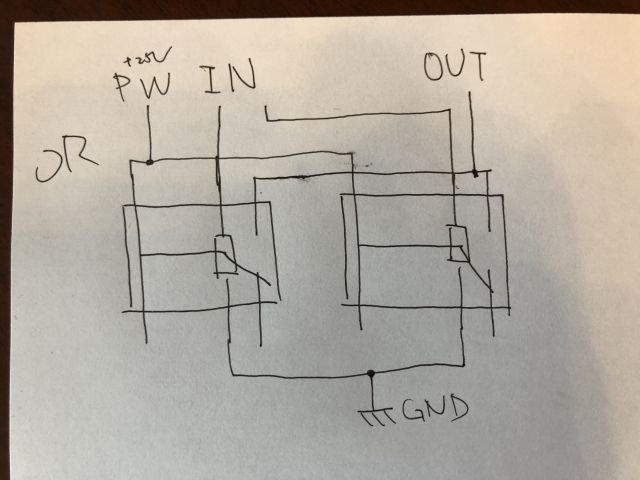 +25V
PW IN OUT
OR
GND